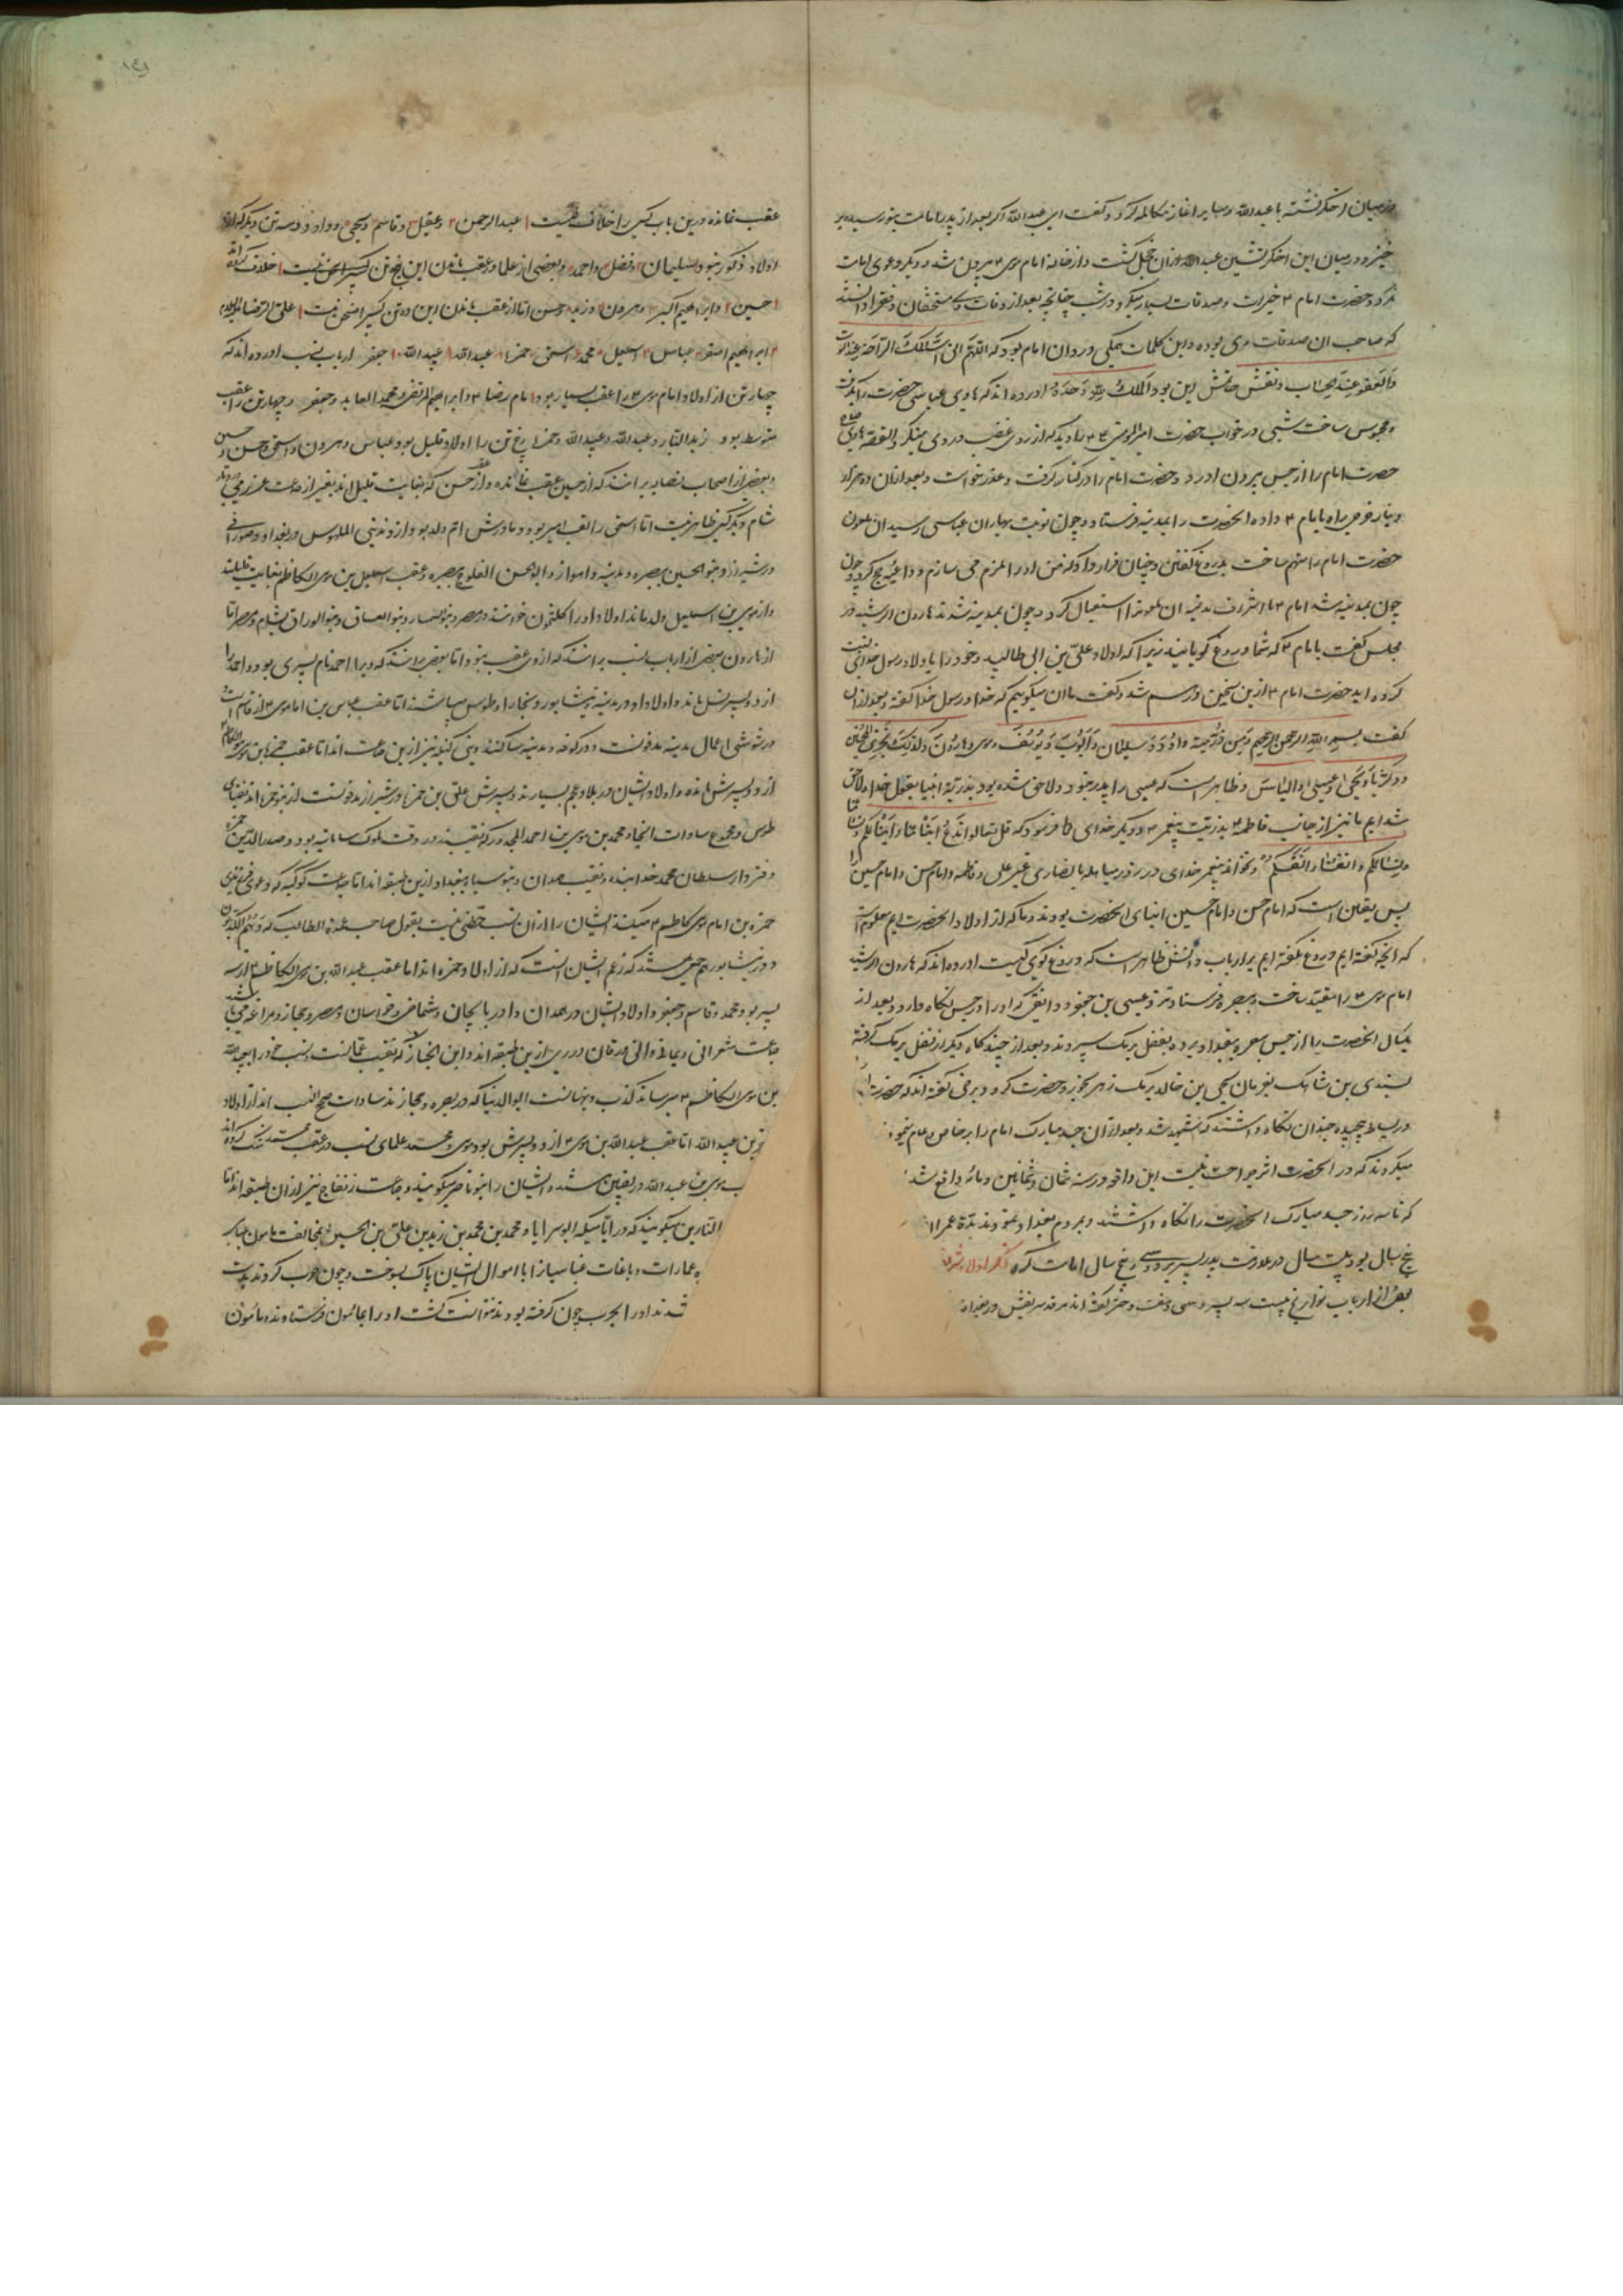 درمیان اخکر نشسته با عبدالله و سایر اغاز مکالمه کرد و کفت ای عبدالله اکر بعد از پدر امامت بتو رسیده بر
خیز و درمیان این اخکر نشین عبدالله ازان خجل کشت و از خانه امام موسی ۴ بیرون شد و دیکر دعوی امامت
نکرد و حضرت امام ۴ خیرات و صدقات بسیار میکرد در شب چنانچه بعد از وفات وی مستحقان و فقرا دانستند
که صاحب ان صدقات وی بوده و این کلمات همکی ورد ان امام بود که اللهم انی اسئلک الراحة عند الموت
والعفو عند الحساب و نقش خاتمش این بود الملک لله وحده اورده اند که هادی عباسی حضرت را بکرفت
و محبوس ساخت شبی در خواب حضرت امیرالمومنین ۴ را دید که از روی غضب در وی مینکرد القصه هادی
حضرت امام را از حبس بیرون اورد و حضرت امام را در کنار کرفت و عذر خواست و بعد ازان ده هزار
دینار خرجی راه بامام ۴ داده انحضرت را بمدینه فرستاد و چون نوبت بهارون عباسی رسید ان ملعون
حضرت امام را متهم ساخت بدروغ کفتن و چنان قرار داد که من او را ملزم می سازم و داعیه حج کرد و چون
چون بمدینه شد امام ۴ با اشراف مدینه ان ملعونرا استقبال کرد و چون بمدینه شدند هارون الرشید در
مجلس کفت بامام ۴ که شما دروغ کویانید زیرا که اولاد علی بن ابی طالبید و خود را باولاد رسول خدای نسبت
کرده اید حضرت امام ۴ ازین سخن درهم شد و کفت ما ان میکوییم که خدا و رسول خدا کفته و بعد ازان
کفت بسم الله الرحمن الرحیم ومن ذریته داود وسلیمان وایوب ویوسف وموسی وهارون وکذلک نجزی المحسنین
وزکریا ویحیی وعیسی والیاس و ظاهر است که عیسی را پدر نبود و لاحق شده بود بذریة انبیا بقول خدا و لاحق
شده ایم ما نیز از جانب فاطمه ۴ بذریت پیغمبر ۴ و دیکر خدای ما فرمود که قل تعالوا ندع ابنائنا وابنائکم ونسائنا
ونسائکم وانفسنا وانفسکم و نخواند پیغمبر خدای در روز مباهله با نصاری غیر علی و فاطمه و امام حسن و امام حسین را
پس یقین است که امام حسن و امام حسین ابنای انحضرت بودند و ما که از اولاد انحضرت ایم معلوم است
که انچه کفته ایم دروغ نکفته ایم بر ارباب دانش ظاهر است که دروغ کوی کیست اورده اند که هارون الرشید
امام موسی ۴ را مقید ساخت و ببصره فرستاد نزد عیسی بن جعفر دوانقی که او را در حبس نکاه دارد و بعد از
یکسال انحضرت را از حبس بصره ببغداد برده بفضل برمک سپردند و بعد از چند کاه دیکر از فضل برمک کرفته
بسندی بن شاهک بفرمان یحیی بن خالد برمک زهر بخورد حضرت کرد و برخی کفته اند که حضرت را
در بساط پیچیده چندان نکاه داشتند که شهید شد و بعد ازان جسد مبارک امام را بر خاص و عام
میکردند که در انحضرت اثر جراحت نیست این واقعه در سنه ثمان و ثمانین و مائه واقع شد
که تا سه روز جسد مبارک انحضرت را نکاه داشتند و بمردم بغداد نمودند مدة عمر
پنج سال بود بیست سال در ملازمت پدر بسر برد و سی و پنج سال امامت کرد ذکر اولاد
بعضی از ارباب تواریخ بیست سه پسر و سی و هفت دختر کفته اند مرقد شریفش در بغداد
عقب نمانده درین باب کسی را خلاف نیست ۱ عبدالرحمن ۲ و عقیل ۳ و قاسم ۴ و یحیی ۵ و داود و سه تن دیکر که ایشانرا
اولاد ذکور نبود سلیمان ۲ و فضل ۳ و احمد و بعضی از علما در عقب ماندن این پنج تن کسیرا سخن نیست خلاف کرده اند
۱ حسین ۲ و ابراهیم اکبر ۳ و هرون ۴ و زید ۵ و حسن اما از عقب ماندن این ده تن کسیرا سخن نیست ۱ علی الرضا علیه السلام
۲ ابراهیم اصغر ۳ عباس ۴ اسمعیل ۵ محمد ۶ اسحق ۷ حمزه ۸ عبدالله ۹ عبیدالله ۱۰ جعفر ارباب نسب اورده اند که
چهار تن از اولاد امام موسی ۴ را عقب بسیار بود امام رضا ۴ و ابراهیم المرتضی و محمد العابد و جعفر و چهار تن را عقب
متوسط بود زید النار و عبدالله و عبیدالله و حمزه و پنج تن را اولاد قلیل بود عباس و هرون و اسحق و حسن و حسین
و بعضی از اصحاب نسابه بر انند که از حسین عقب نمانده و از حسن که بغایت قلیل اند بغیر از جماعت عزیزی در دیار
شام دیکر کسی ظاهر نیست اما اسحق را لقب امیر بود و مادرش ام ولد بود و ازو مدنی الملهوس و در بغداد و صورانی
در شیراز و بنو الحسین ببصره و مدینه و اهواز و ابوالحسن المفلوج ببصره و عقب اسمعیل بن موسی الکاظم بغایت قلیلند
و از موسی بن اسمعیل ولد ماند اولاد او را کلثمون خوانند در مصر و بنو السمسار و بنو العساف و بنو الوراق بشام و مصر اما
از هارون بعضی از ارباب نسب بر انند که ازوی عقب نبود اما بعضی بر انند که ویرا احمد نام پسری بود و احمد را
از دو پسر نسل ماند و اولاد او در مدینه و نیشابور و بخارا و طوس میباشند اما عقب عباس بن امام موسی ۴ از قاسم است
در شوشی اعمال مدینه مدفونست و در کوفه و مدینه ساکنند و بنی کنیز نیز ازین جماعت اند اما عقب حمزه بن موسی الکاظم ۴
از دو پسرش مانده و اولاد ایشان در بلاد عجم بسیارند و پسرش علی بن حمزه در شیراز مدفونست از بنو حمزه اند نقبای
طوس و مجموع سادات انجا و محمد بن موسی بن احمد المجدور که نقیبند در وقت ملوک سامانیه بود و صدرالدین حمزه
دفتردار سلطان محمد خدابنده و نقیب همدان و بنو سیاه ببغداد ازین طبقه اند اما جماعت کوکبیه که دعوی فرزندی
حمزه بن امام موسی کاظم ۴ میکنند ایشان را ازان نسب حظی نیست بقول صاحب عمدة الطالب که وَهُمُ الکَذّابون
و در نیشابور هم جمعی هستند که زعم ایشان انست که از اولاد حمزه اند اما عقب عبدالله بن موسی الکاظم ۴ از سه
پسر بود محمد و قاسم و جعفر و اولاد ایشان در همدان و اذربایجان و شماخی و خراسان و مصر و حجاز و مراغه می باشند
جماعت شعرانی و یمانی و ورقان در ری ازین طبقه اند و ابن الخباز که نقیب عمالست نسب خود را بعبیدالله
بن موسی الکاظم ۴ میرساند کذب و بهتانست ابوالدنیا که در بصره و حجازند سادات صحیح النسب اند از اولاد
بن عبیدالله اما عقب عبدالله بن موسی ۴ از دو پسرش بود موسی و محمد علمای نسب در عقب محمد شک کرده اند
موسی بن عبدالله در نصیبین هستند و ایشان را بنو ناصر میکویند و جماعت نفاخ نیز ازان طبقه اند اما
النار بن میکویند که در ایامیکه ابوالسرایا و محمد بن محمد بن زید بن علی بن الحسین ۴ بمخالفت مامون عباسی
عمارات و باغات عباسیان را با اموال ایشان پاک بسوخت و چون حرب کردند بدست
شدند او را بحرب چون کرفته بودند نتوانست کشت او را بمامون فرستادند و مامون